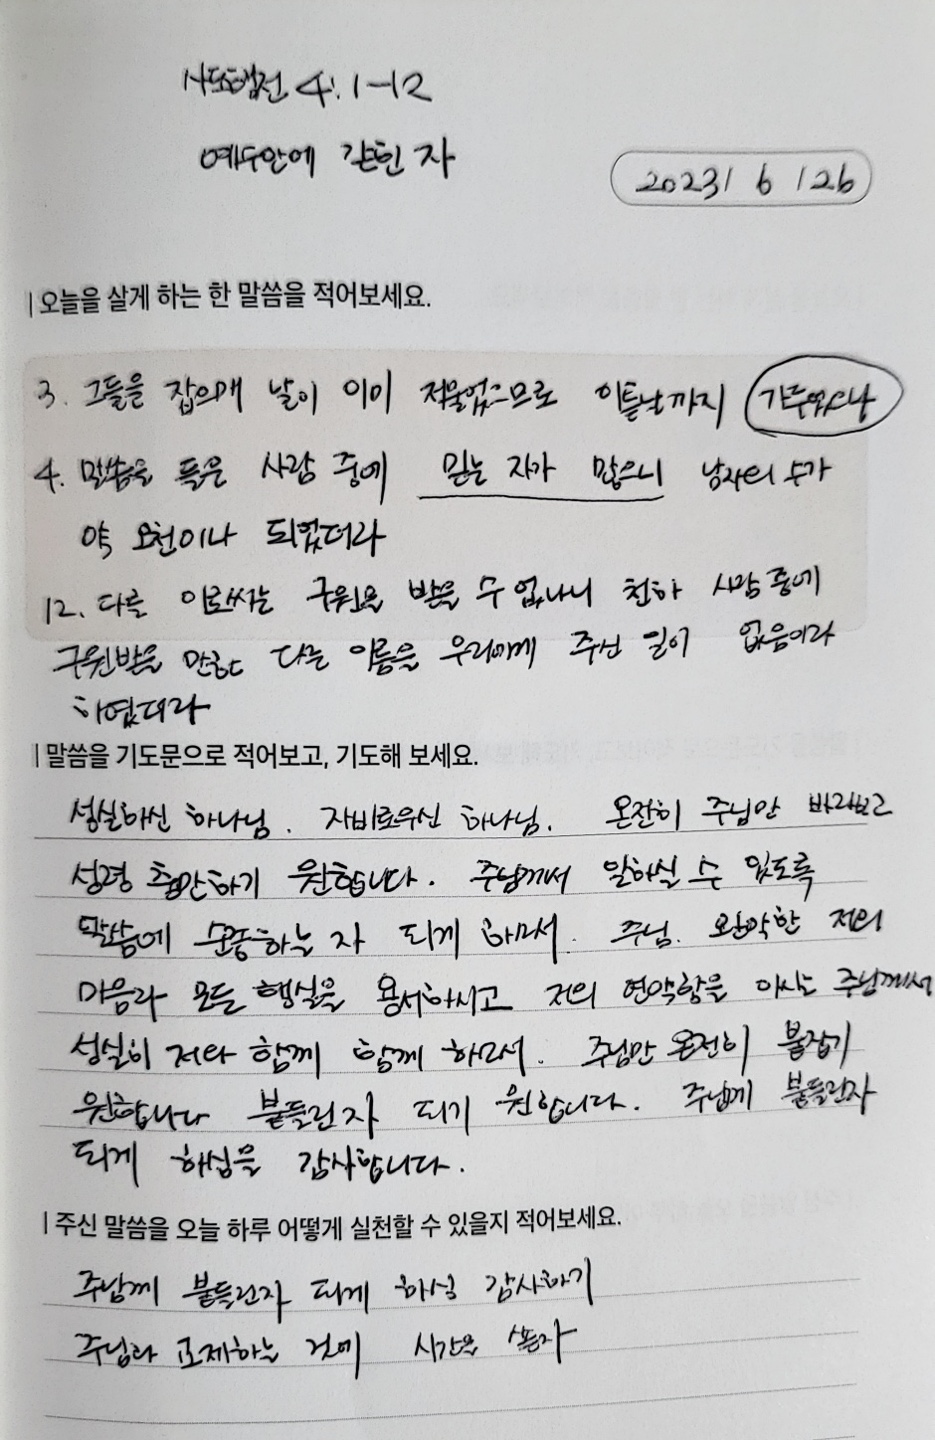 사도행전 4:1-12
예수안에 갇힌 자
2023/ 6 /26
| 오늘을 살게 하는 한 말씀을 적어보세요.
3. 그들을 잡으매 날이 이미 저물었으므로 이튿날까지 가두었으나
4. 말씀을 들은 사람 중에 믿는 자가 많으니 남자의 수가
약 오천이나 되었더라
12. 다른 이로써는 구원을 받을 수 없나니 천하 사람 중에
구원받을 만한 다른 이름을 우리에게 주신 일이 없음이라
하였더라
| 말씀을 기도문으로 적어보고, 기도해 보세요.
성실하신 하나님. 자비로우신 하나님. 온전히 주님만 바라보고
성령 충만하기 원합니다. 주님께서 일하실 수 있도록
말씀에 순종하는 자 되게 하소서. 주님. 완악한 저의
마음과 모든 행실을 용서하시고 저의 연약함을 아시는 주님께서
성실히 저와 함께 함께 하소서. 주님만 온전히 붙잡기
원합니다 붙들린자 되기 원합니다. 주님께 붙들린자
되게 하심을 감사합니다.
| 주신 말씀을 오늘 하루 어떻게 실천할 수 있을지 적어보세요.
주님께 붙들린자 되게 하심 감사하기
주님과 교제하는 것에 시간을 쏟자